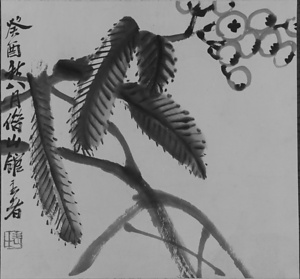 癸酉秋八月借山館主者